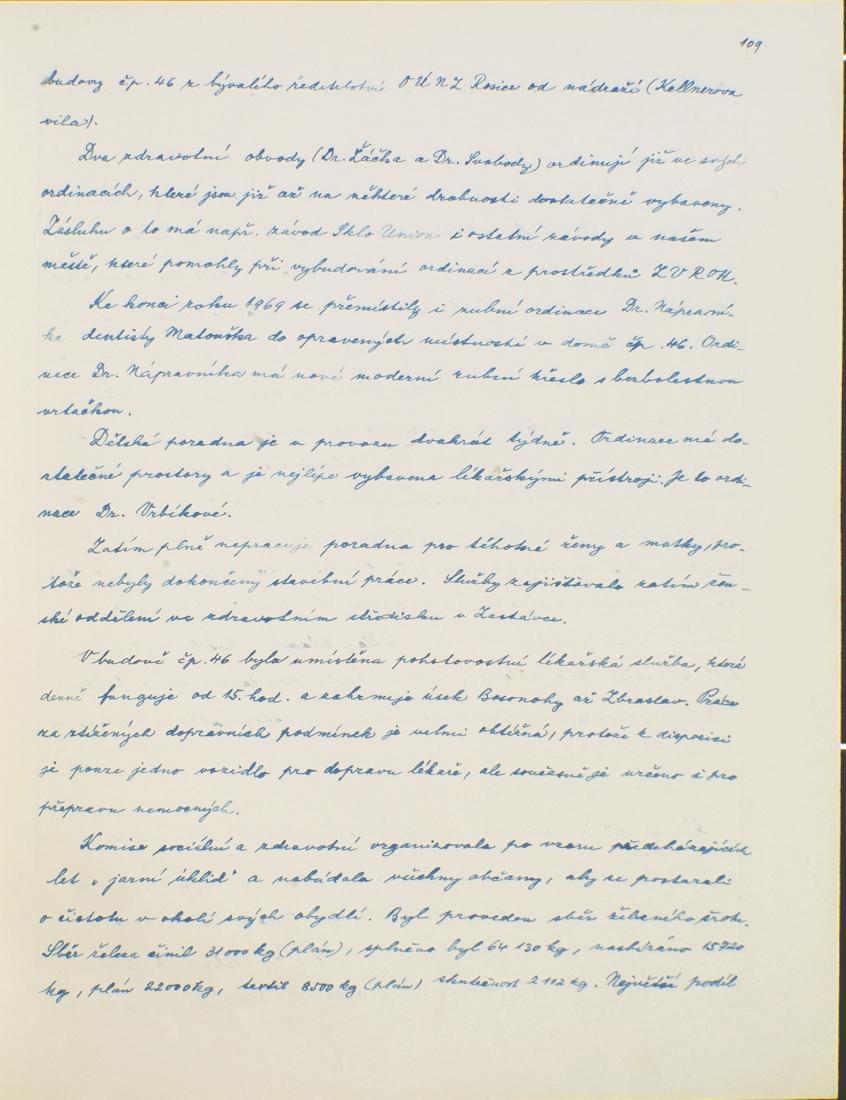 109
budovy čp. 46 z bývalého ředitelství OÚNZ Rosice od nádraží (Kellnerova
vila).
Dva zdravotní obvody (Dr. Žáčka a Dr. Svobody) ordinují již ve svých
ordinacích, které jsou již až na některé drobnosti dostatečně vybaveny.
Zásluhu o to má např. závod Sklo Union i ostatní závody v našem
městě, které pomohly při vybudování ordinací z prostředků ZVROH.
Ke konci roku 1969 se přemístily i zubní ordinace Dr. Nápravní-
ka dentisty Matouška do opravených místností v domě čp. 46. Ordi-
nace Dr. Nápravníka má nové moderní zubní křeslo s bezbolestnou
vrtačkou.
Dětská poradna je v provozu dvakrát týdně. Ordinace má do-
statečné prostory a je nejlépe vybavena lékařskými přístroji. Je to ordi-
nace Dr. Vrbíkové.
Zatím plně nepracuje poradna pro těhotné ženy a matky, pro-
tože nebyly dokončeny stavební práce. Služby zajišťovalo zatím žen-
ské oddělení ve zdravotním středisku v Zastávce.
V budově čp. 46 byla umístěna pohotovostní lékařská služba, která
denně funguje od 15. hod. a zahrnuje úsek Bosonohy až Zbraslav. Práce
za ztížených dopravních podmínek je velmi obtížná, protože k disposici
je pouze jedno vozidlo pro dopravu lékaře, ale současně je určeno i pro
přepravu nemocných.
Komise sociální a zdravotní organizovala po vzoru předcházejících
let „jarní úklid" a nabádala všechny občany, aby se postarali
o čistotu v okolí svých obydlí. Byl proveden sběr železného šrotu.
Sběr železa činil 31000 kg (plán), splněno byl 64 130 kg, nasbíráno 15720
kg, plán 22000 kg, textil 8500 kg (plán) skutečnost 2112 kg. Největší podíl